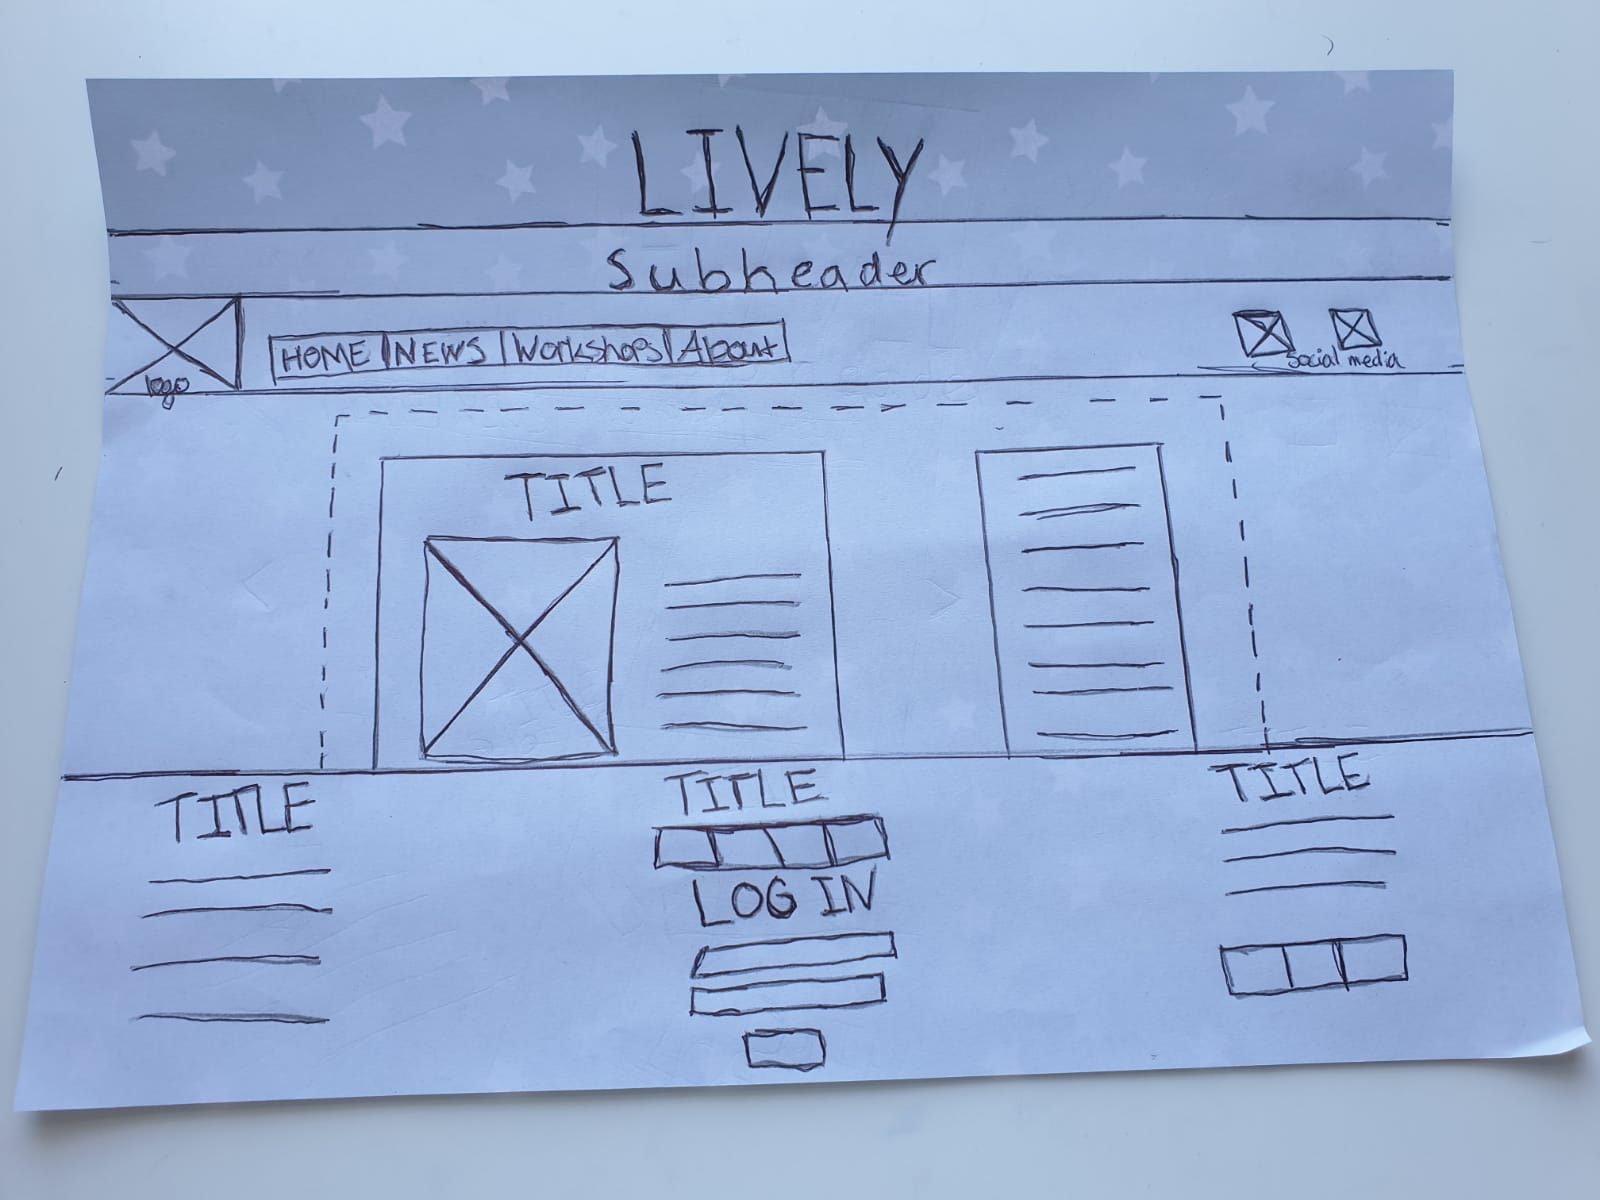 LIVELY
Subheader
logo
HOME NEWS Workshops About
Social media
TITLE
TITLE
TITLE
LOG IN
TITLE